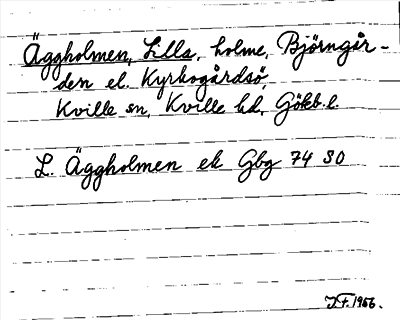 Äggholmen, Lilla, holme, Björngår-
den el. Kyrkogårdsö,
Kville sn, Kville hd, Göteb. l.
L. Äggholmen ek Gbg 74 SO
1956.